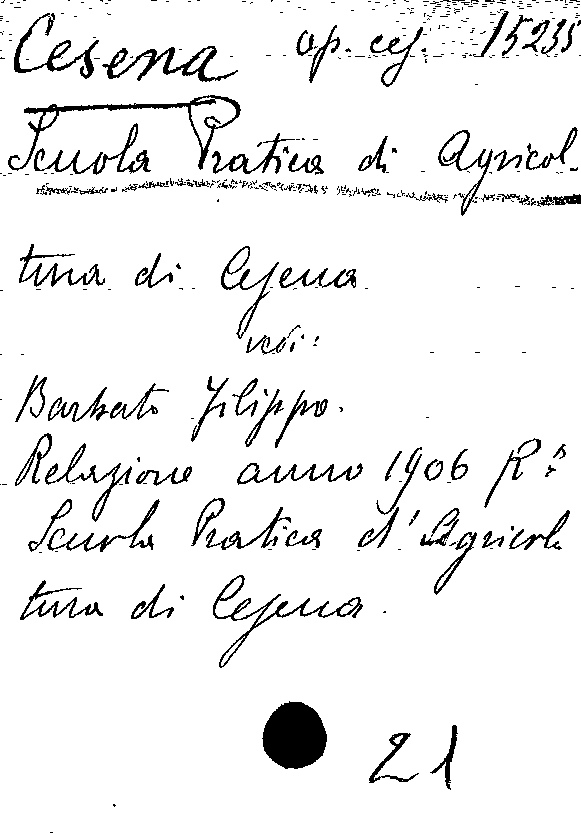 Cesena op. ces. 15235
Scuola Pratica di Agricol-
tura di Cesena
vedi:
Barbato Filippo.
Relazione anno 1906 R.ª
Scuola Pratica d'Agricol
tura di Cesena.
21